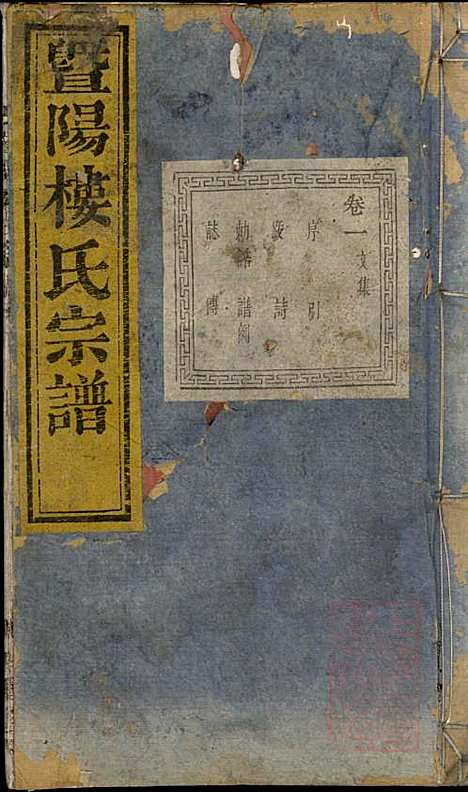 暨陽樓氏宗譜
卷一 文集
序 引
跋 詩
勅譜 譜閣
誌 傳